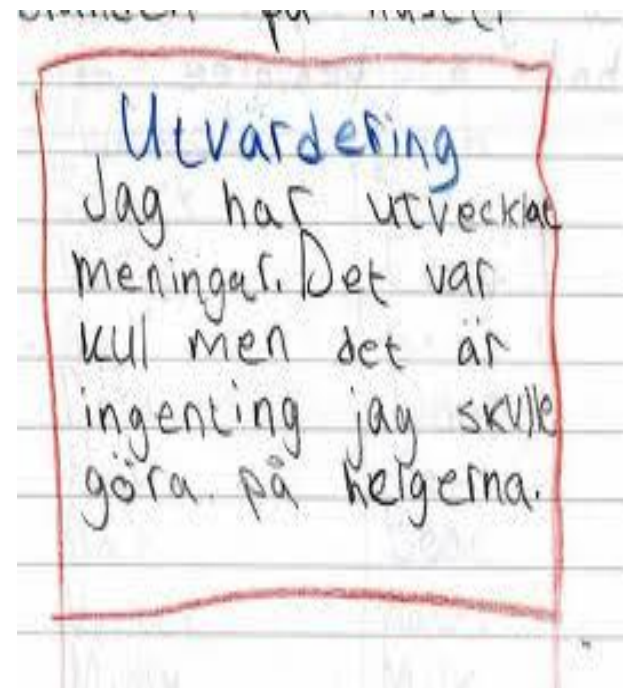 Utvärdering
Jag har utvecklat
meningar. Det var
kul men det är
ingenting jag skulle
göra. på helgerna.